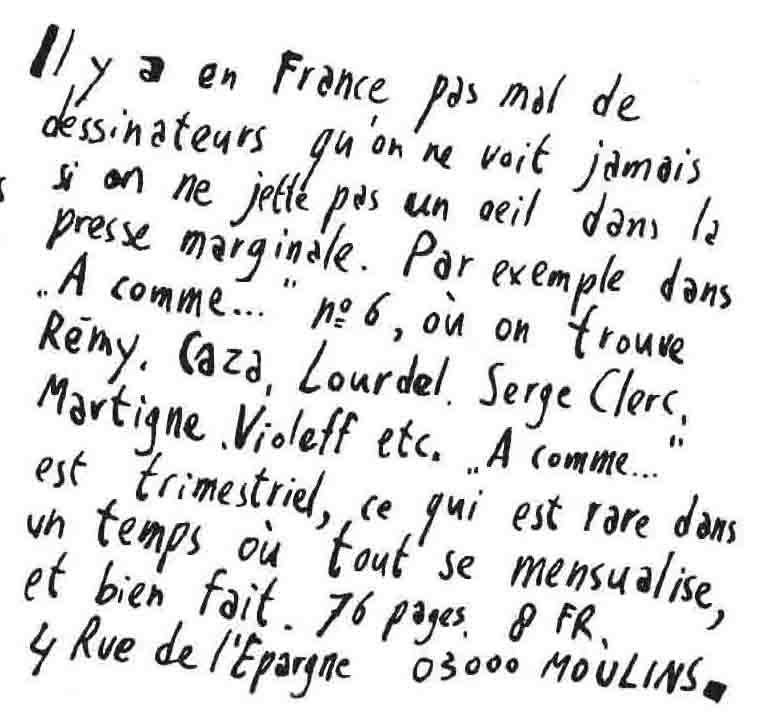 Il y a en France pas mal de
dessinateurs qu'on ne voit jamais
si on ne jette pas un oeil dans la
presse marginale. Par exemple dans
„A comme..." nº 6, où on trouve
Rémy, Caza, Lourdel, Serge Clerc,
Martigne, Violeff etc. „A comme..."
est trimestriel, ce qui est rare dans
un temps où tout se mensualise,
et bien fait. 76 pages. 8 FR.
4 Rue de l'Epargne 03000 MOULINS.